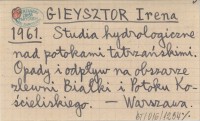 GIEYSZTOR Irena
1961. Studia hydrologiczne
nad potokami tatrzańskimi.
Opady i odpływ na obszarze
zlewni Białki i Potoku Ko-
ścieliskiego. — Warszawa.